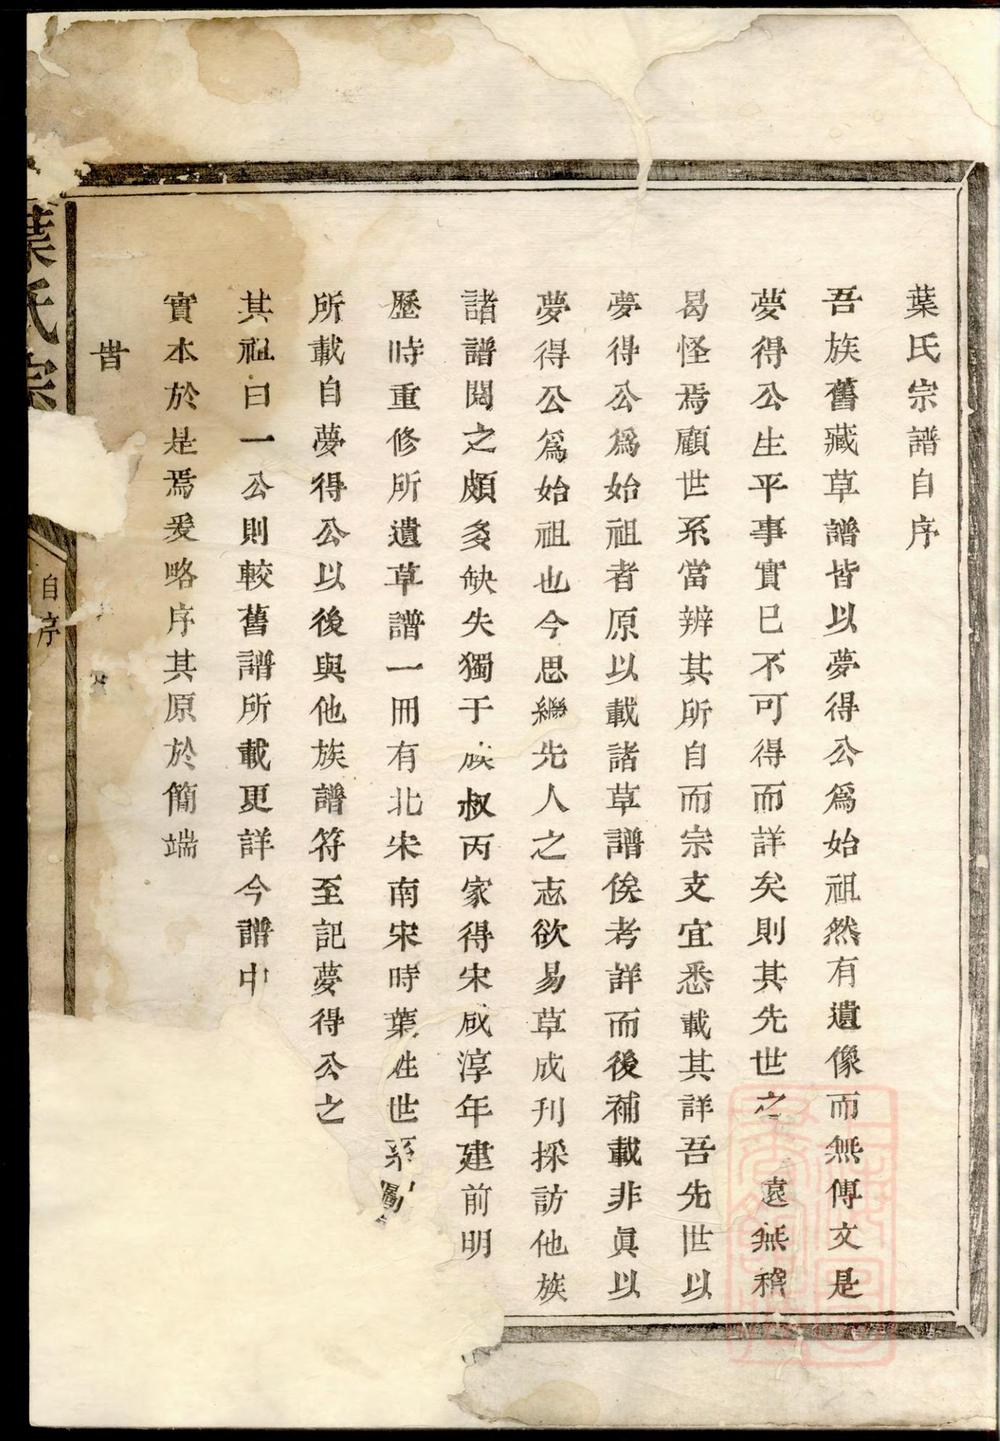 葉氏宗譜自序
吾族舊藏草譜皆以夢得公爲始祖然有遺像而無傳文是
夢得公生平事實已不可得而詳矣則其先世之遠無稽
曷怪焉顧世系當辨其所自而宗支宜悉載其詳吾先世以
夢得公爲始祖者原以載諸草譜俟考詳而後補載非眞以
夢得公爲始祖也今思繼先人之志欲易草成刊採訪他族
諸譜閱之頗多缺失獨于族叔丙家得宋咸淳年建前明
歷時重修所遺草譜一冊有北宋南宋時葉姓世系
所載自夢得公以後與他族譜符至記夢得公之
其祖曰一公則較舊譜所載更詳今譜中
實本於是焉爰略序其原於簡端
旹
葉氏宗
自序